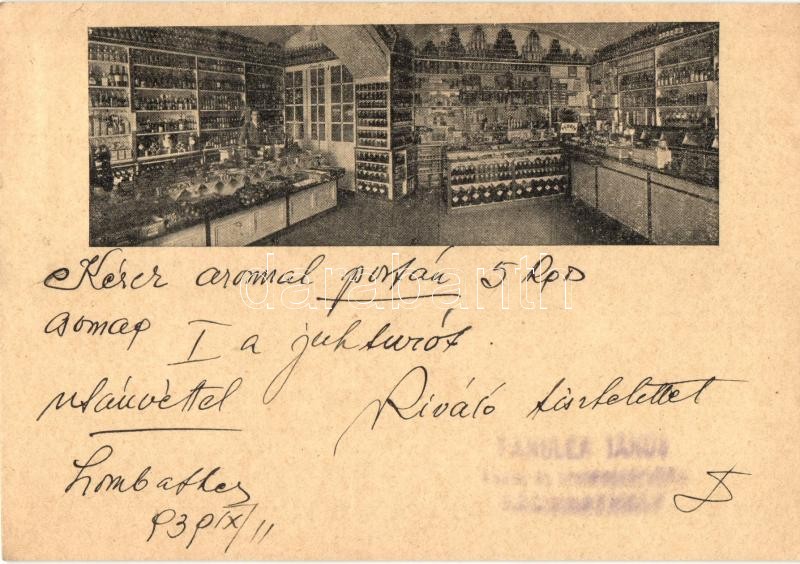 Kérek azonnal postán 5 kgos
csomag I a juhturót
utánvéttel Kiváló tisztelettel
Szombathely
939 IX/11
JÁNOS
darabanth